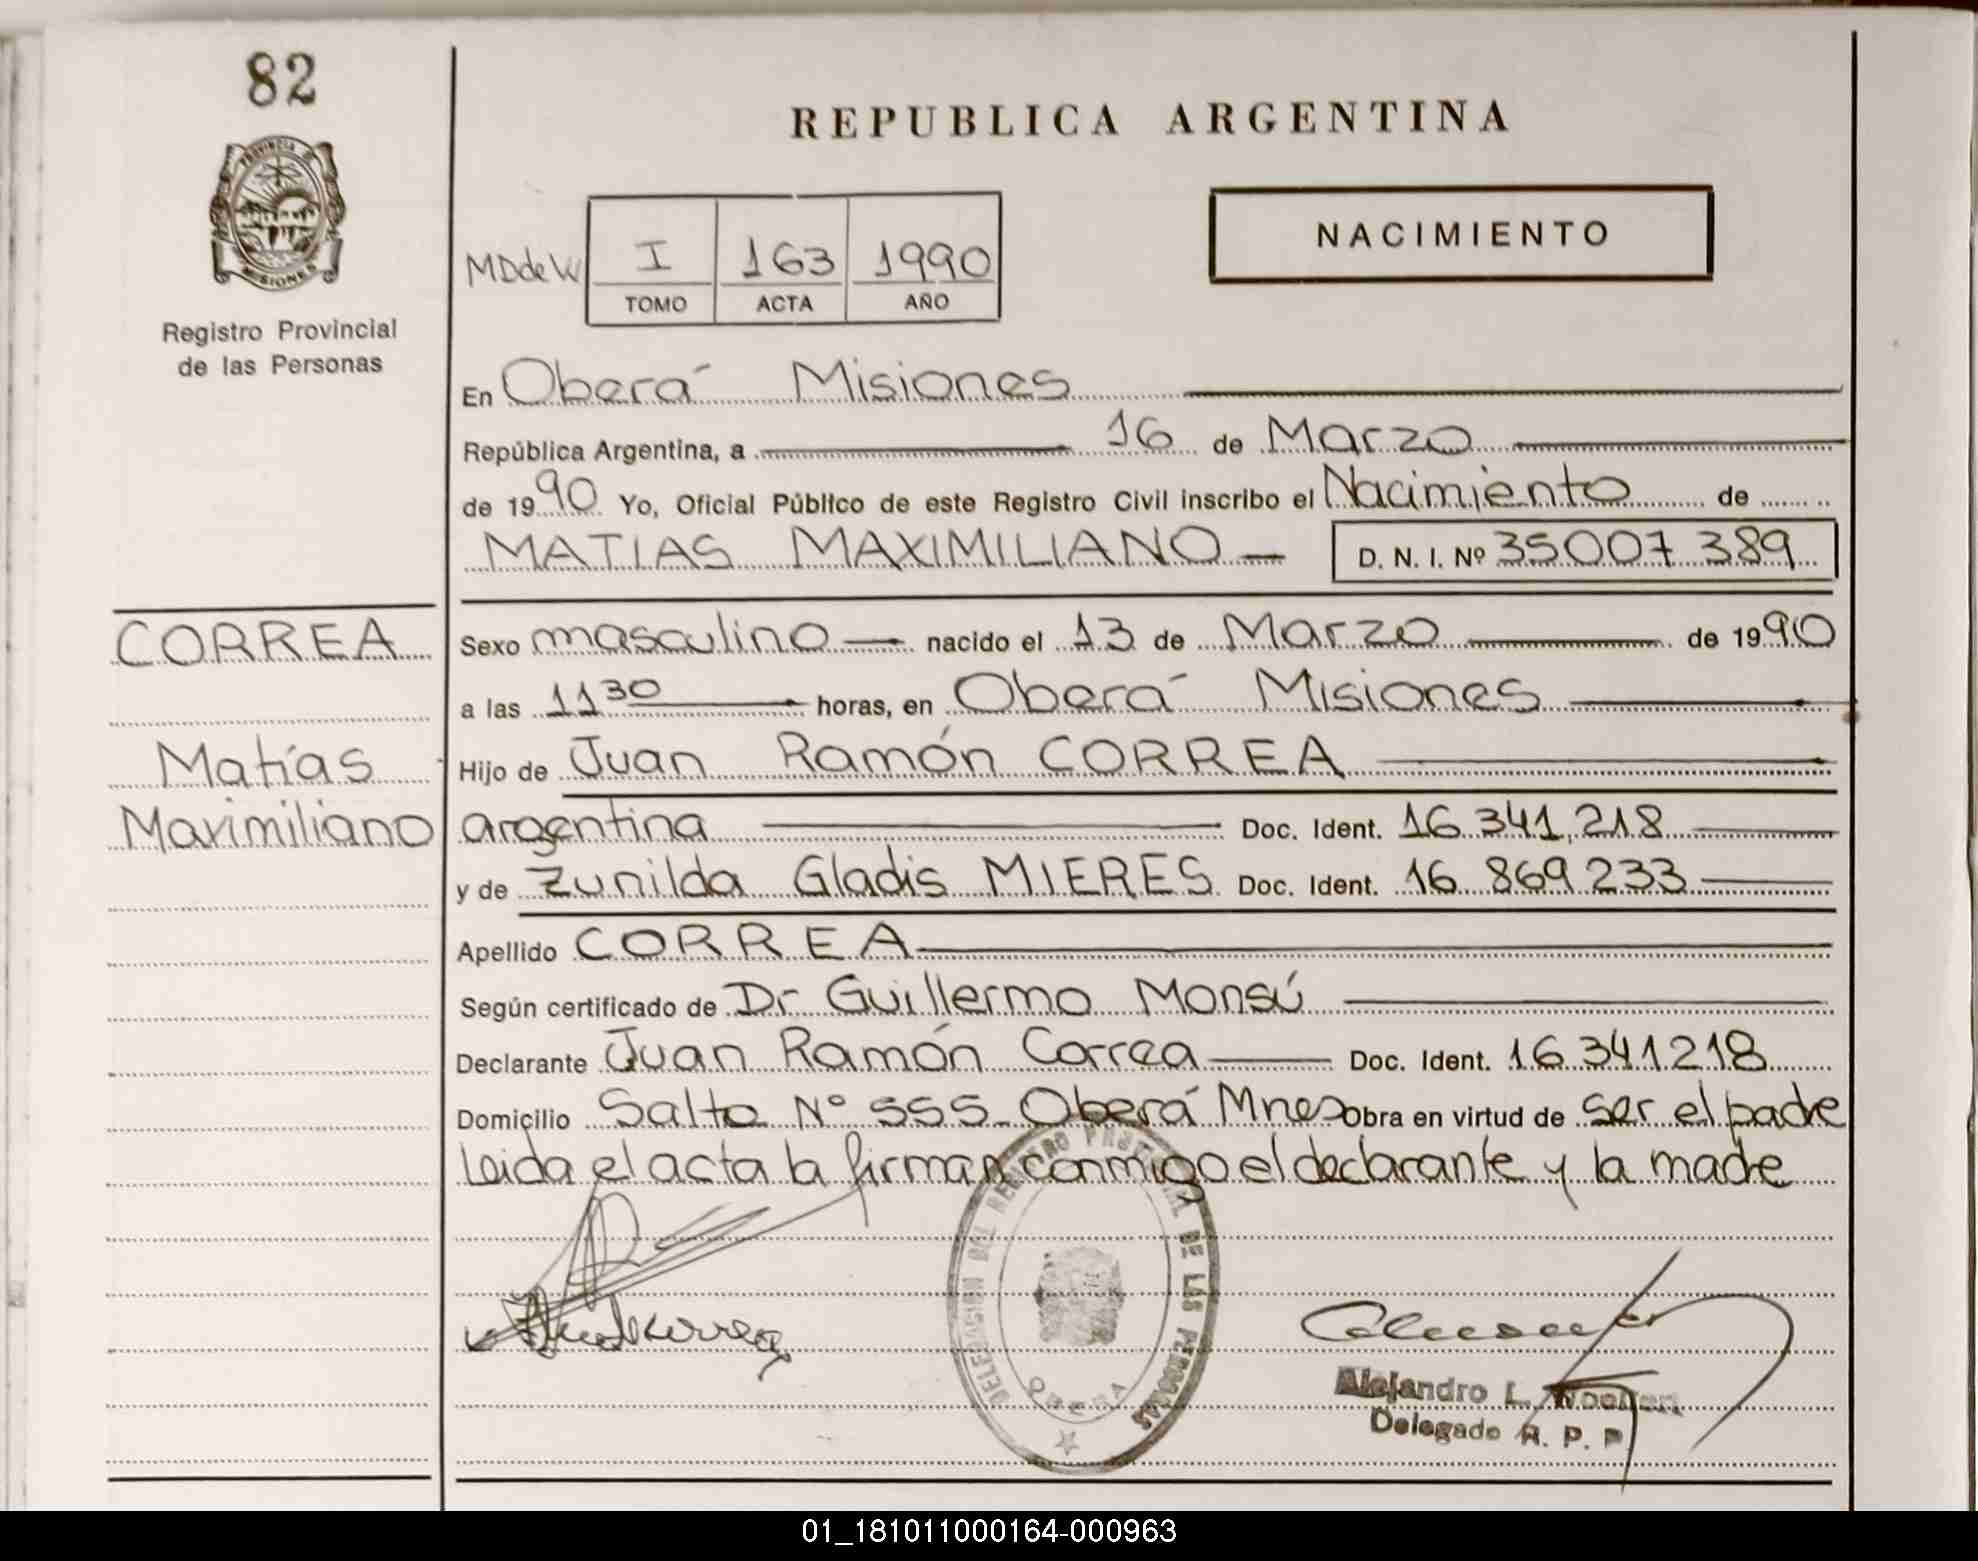 82
PROVINCIA DE
MISIONES
Registro Provincial
de las Personas
REPUBLICA ARGENTINA
NACIMIENTO
MDdeW
I 163 1990
TOMO ACTA AÑO
En Oberá Misiones
República Argentina, a 16 de Marzo
de 1990 Yo, Oficial Público de este Registro Civil inscribo el Nacimiento de
MATIAS MAXIMILIANO D. N. I. Nº 35007389
CORREA
Matías
Maximiliano
Sexo masculino nacido el 13 de Marzo de 1990
a las 11 30 horas, en Oberá Misiones
Hijo de Juan Ramón CORREA
argentina Doc. Ident. 16.341.218
y de Zunilda Gladis MIERES Doc. Ident. 16 869 233
Apellido CORREA
Según certificado de Dr Guillermo Monsú
Declarante Juan Ramón Correa Doc. Ident. 16.341218
Domicilio Salto Nº 555 - Oberá Mnes Obra en virtud de ser el padre
Leida el acta la firman conmigo el declarante y la madre
DELEGACION DEL REGISTRO PROVINCIAL DE LAS PERSONAS
OBERA
Alejandro L.
Delegado R. P. P.
01_181011000164-000963